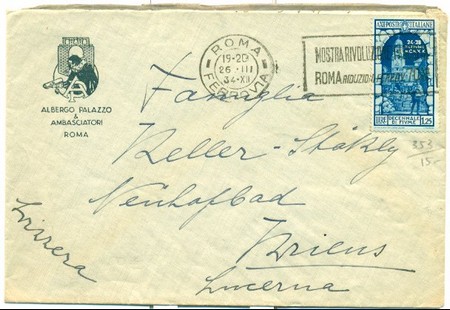 ALBERGO PALAZZO
&
AMBASCIATORI
ROMA
ROMA
19-20
26 · III
34·XII
FERROVIA
MOSTRA RIVOLUZI
ROMA RIDUZIO
POSTE ITALIANE
DECENNALE
DI FIUME
1,25
Famiglia
Keller-Stökly
Neuhofbad
Kriens
Lucerna
Svizzera
353
15-